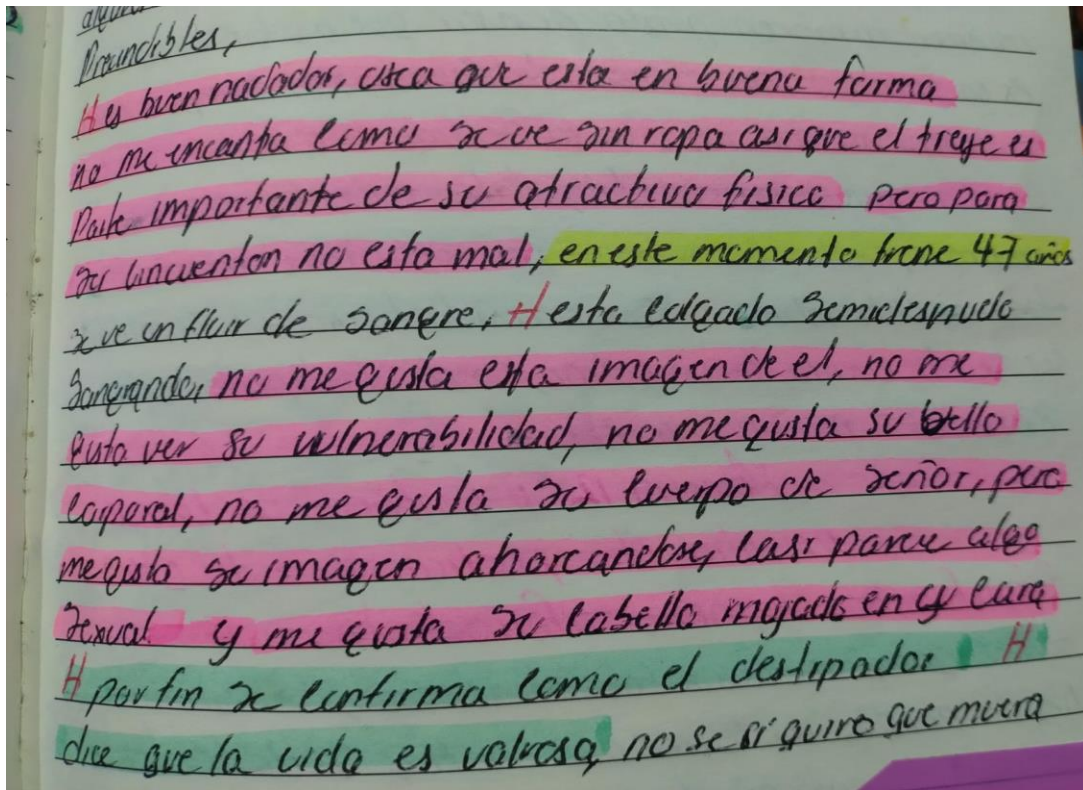 H es buen nadador, creo que esta en buena forma
no me encanta como se ve sin ropa asi que el traje es
parte importante de su atractivo fisico pero para
su cincuenton no esta mal, en este momento tiene 47 años
se ve un fluir de sangre, H esta colgado semidesnudo
sangrando, no me gusta esta imagen de el, no me
gusto ver su vulnerabilidad, no me gusta su bello
corporal, no me gusta su cuerpo de señor, pero
me gusto su imagen ahorcandose, casi parece algo
sexual y me gusta su cabello mojado en cara
H por fin se confirma como el destripador H
dice que la vida es valiosa, no se si quiero que muera